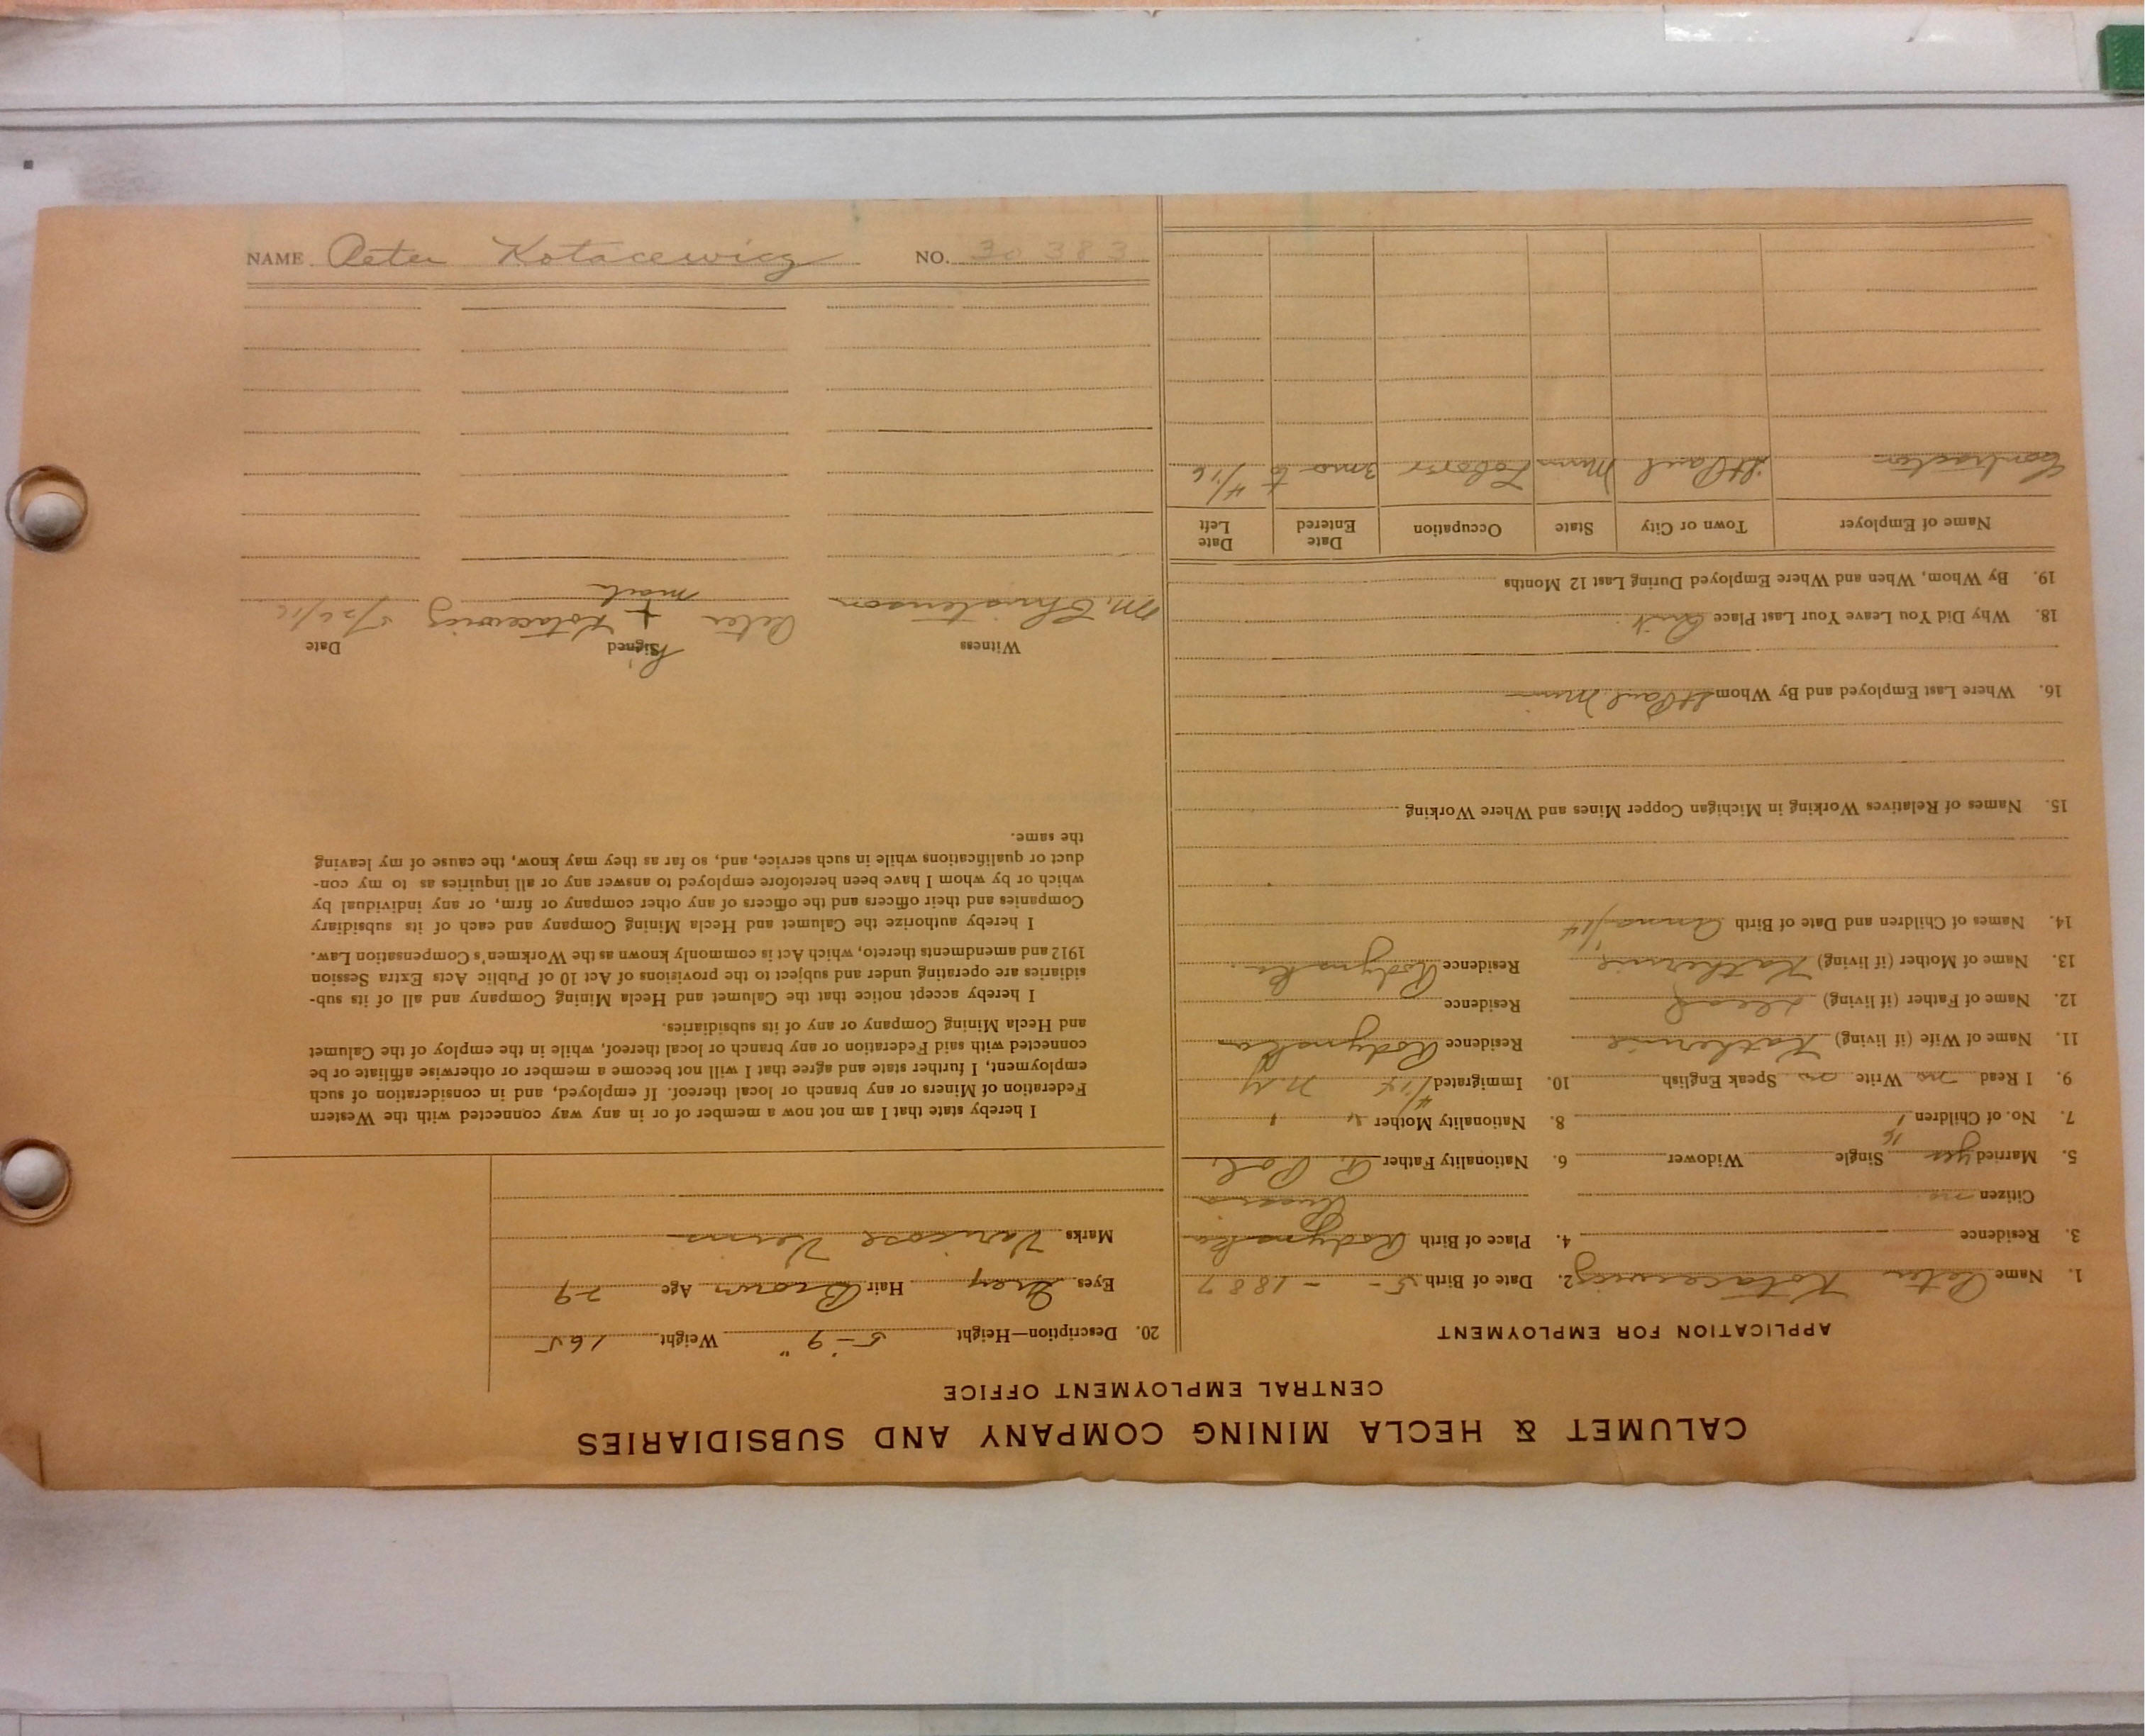 CALUMET & HECLA MINING COMPANY AND SUBSIDIARIES
CENTRAL EMPLOYMENT OFFICE
APPLICATION FOR EMPLOYMENT
1. Name Peter Kotacewicz 2. Date of Birth 5 - - 1887
3. Residence 4. Place of Birth Rodynska
Citizen no Russia
5. Married yes Single Widower 6. Nationality Father R. Pol.
7. No. of Children 1 8. Nationality Mother " "
9. I Read no Write no Speak English 10. Immigrated 4/14 N Y
11. Name of Wife (if living) Katherine Residence Rodynska
12. Name of Father (if living) dead Residence
13. Name of Mother (if living) Katherine Residence Rodynska
14. Names of Children and Date of Birth Anna 1/14
15. Names of Relatives Working in Michigan Copper Mines and Where Working
16. Where Last Employed and By Whom St Paul Minn
18. Why Did You Leave Your Last Place Quit
19. By Whom, When and Where Employed During Last 12 Months
Name of Employer Town or City State Occupation Date Entered Date Left
Contractor St Paul Minn Laborer 3 mo to 4/16
20. Description—Height 5-'9" Weight 165
Eyes Grey Hair Brown Age 29
Marks Varicose Veins
I hereby state that I am not now a member of or in any way connected with the Western
Federation of Miners or any branch or local thereof. If employed, and in consideration of such
employment, I further state and agree that I will not become a member or otherwise affiliate or be
connected with said Federation or any branch or local thereof, while in the employ of the Calumet
and Hecla Mining Company or any of its subsidiaries.
I hereby accept notice that the Calumet and Hecla Mining Company and all of its sub-
sidiaries are operating under and subject to the provisions of Act 10 of Public Acts Extra Session
1912 and amendments thereto, which Act is commonly known as the Workmen's Compensation Law.
I hereby authorize the Calumet and Hecla Mining Company and each of its subsidiary
Companies and their officers and the officers of any other company or firm, or any individual by
which or by whom I have been heretofore employed to answer any or all inquiries as to my con-
duct or qualifications while in such service, and, so far as they may know, the cause of my leaving
the same.
Witness Signed Date
M. Christenson Peter + Kotacewicz 5/26/16
mark
NAME Peter Kotacewicz NO. 30383